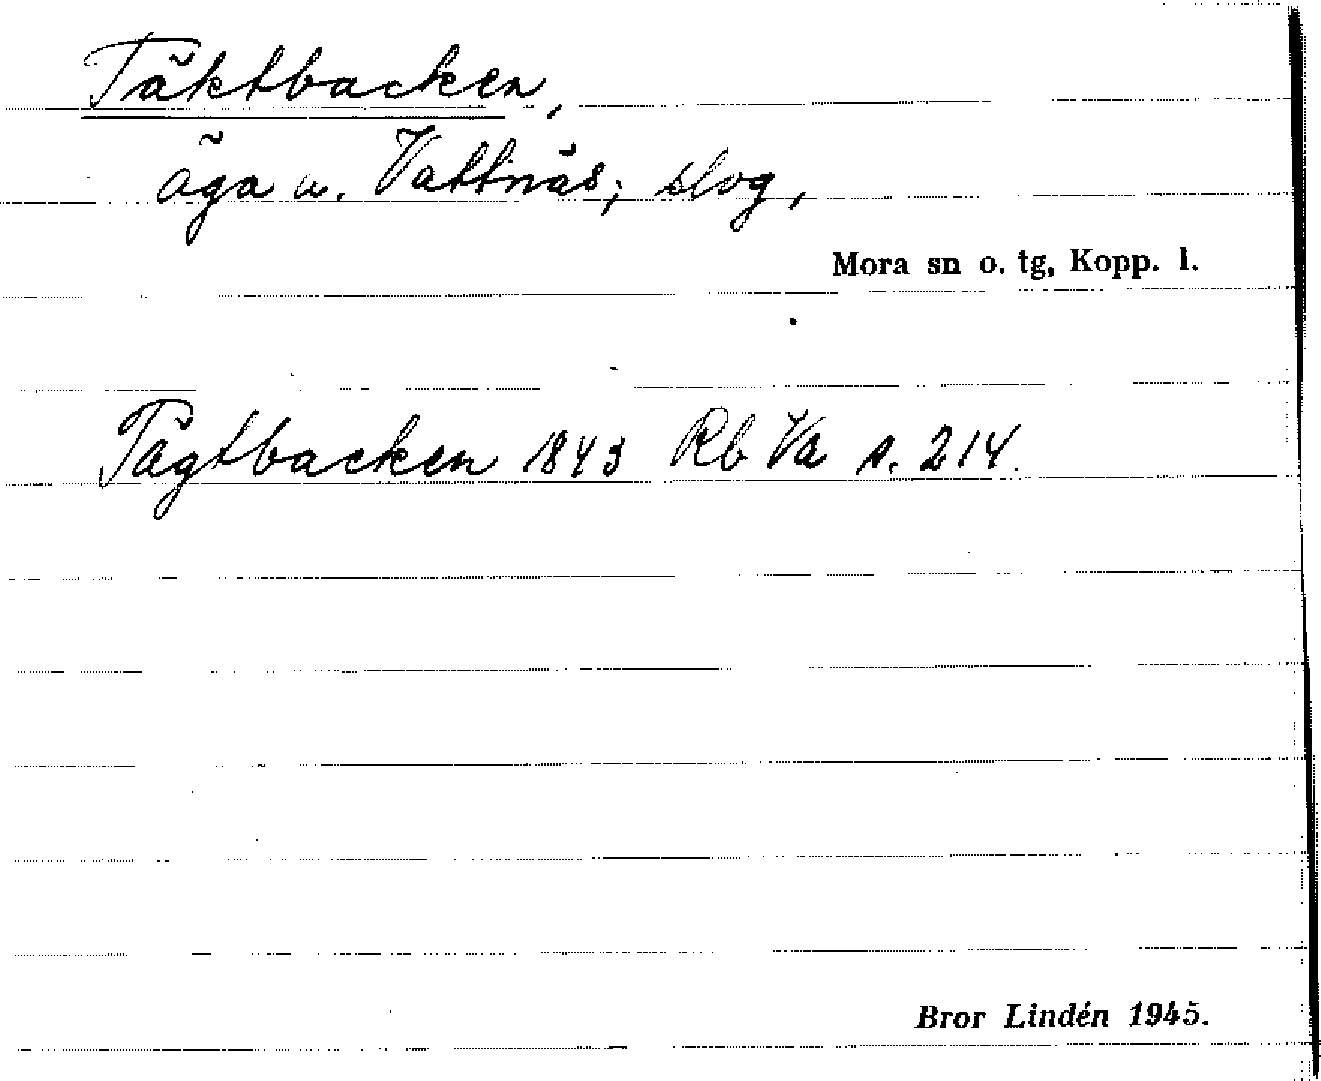 Täktbacken,
äga u. Vattnäs; slog,
Mora sn o. tg, Kopp. l.
Tägtbacken 1843 Rb Va s. 214.
Bror Lindén 1945.